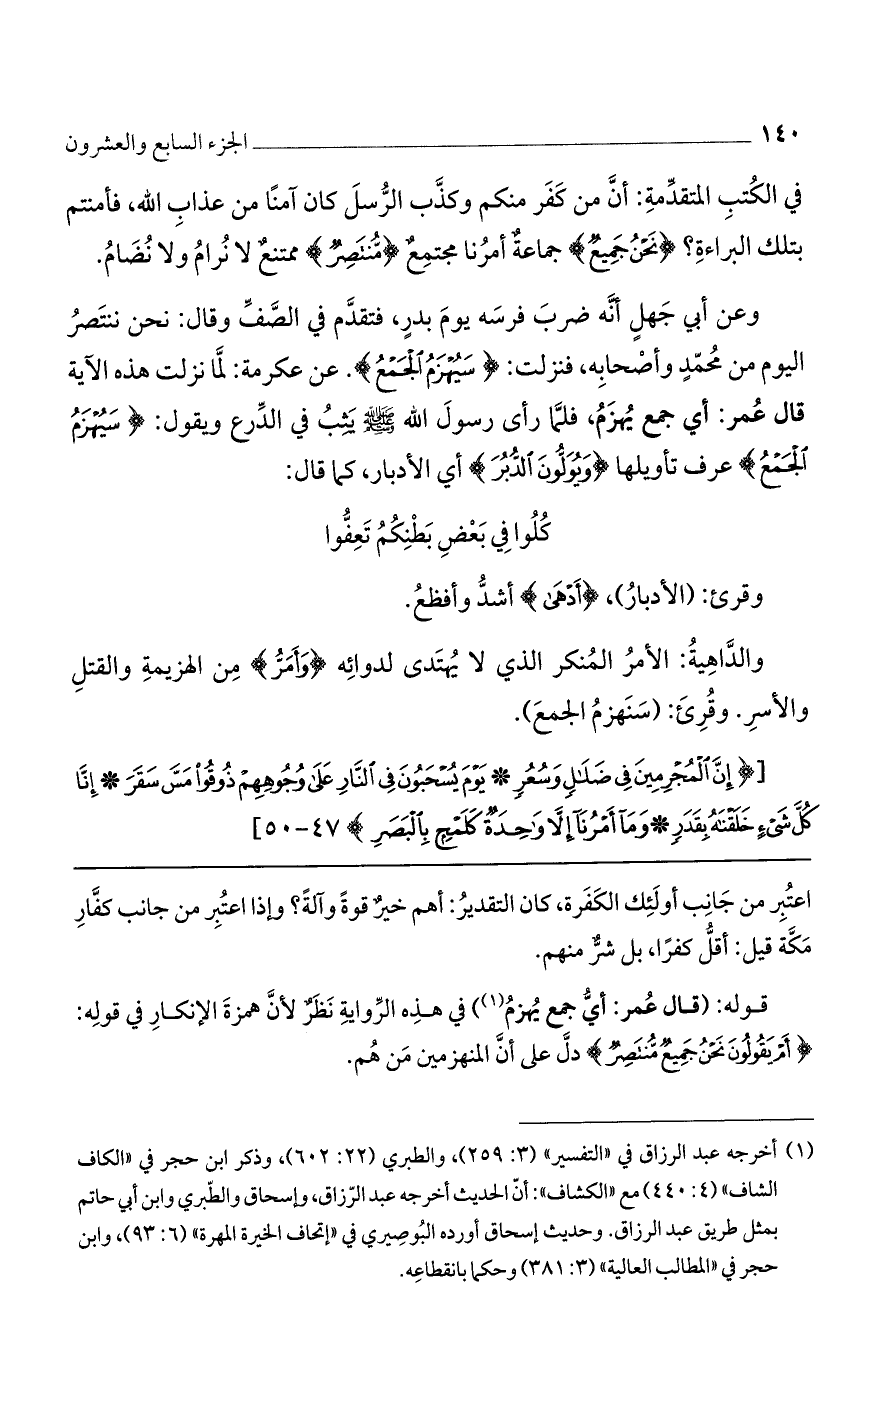 ١٤٠ ـــــــــــــــــــــــــــــــــــــــ الجزء السابع والعشرون
في الكُتبِ المتقدِّمةِ: أنَّ من كَفَر منكم وكذَّب الرُّسلَ كان آمنًا من عذابِ الله، فأمنتم
بتلك البراءةِ؟ ﴿نَحْنُ جَمِيعٌ﴾ جماعةٌ أمرُنا مجتمِعٌ ﴿مُّنتَصِرٌ﴾ ممتنعٌ لا نُرامُ ولا نُضَامُ.
وعن أبي جَهلٍ أنَّه ضربَ فرسَه يومَ بدرٍ، فتقدَّم في الصَّفِّ وقال: نحن ننتَصرُ
اليوم من مُحمّدٍ وأصْحابِه، فنزلت: ﴿سَيُهْزَمُ ٱلْجَمْعُ﴾. عن عكرمة: لمَّا نزلت هذه الآية
قال عُمر: أي جمع يُهزَمُ، فلمَّا رأى رسولَ الله ﷺ يَثِبُ في الدِّرع ويقول: ﴿سَيُهْزَمُ
ٱلْجَمْعُ﴾ عرف تأويلها ﴿وَيُوَلُّونَ ٱلدُّبُرَ﴾ أي الأدبار، كما قال:
كُلُوا فِي بَعْضِ بَطْنِكُمُ تَعِفُّوا
وقرئ: (الأدبارُ)، ﴿أَدْهَىٰ﴾ أشدُّ وأفظعُ.
والدَّاهِيةُ: الأمرُ المُنكر الذي لا يُهتَدى لدوائِه ﴿وَأَمَرُّ﴾ مِن الهزيمةِ والقتلِ
والأسرِ. وقُرِئَ: (سَنَهزمُ الجمعَ).
[﴿إِنَّ ٱلْمُجْرِمِينَ فِى ضَلَـٰلٍ وَسُعُرٍ * يَوْمَ يُسْحَبُونَ فِى ٱلنَّارِ عَلَىٰ وُجُوهِهِمْ ذُوقُوا۟ مَسَّ سَقَرَ * إِنَّا
كُلَّ شَىْءٍ خَلَقْنَـٰهُ بِقَدَرٍ * وَمَآ أَمْرُنَآ إِلَّا وَٰحِدَةٌ كَلَمْحٍۭ بِٱلْبَصَرِ﴾ ٤٧-٥٠]
اعتُبِر من جَانِب أولَئِك الكَفَرة، كان التقديرُ: أهم خيرٌ قوةً وآلةً؟ وإذا اعتُبِر من جانب كفَّارِ
مَكَّة قيل: أقلُّ كفرًا، بل شرٌّ منهم.
قوله: (قال عُمر: أيُّ جمع يُهزمُ(١)) في هذِه الرِّوايةِ نَظَرٌ لأنَّ همزةَ الإنكارِ في قولِه:
﴿أَمْ يَقُولُونَ نَحْنُ جَمِيعٌ مُّنتَصِرٌ﴾ دلَّ على أنَّ المنهزمين مَن هُم.
(١) أخرجه عبد الرزاق في «التفسير» (٣: ٢٥٩)، والطبري (٢٢: ٦٠٢)، وذكر ابن حجر في «الكاف
الشاف» (٤: ٤٤٠) مع «الكشاف»: أنّ الحديث أخرجه عبد الرّزاق، وإسحاق والطّبري وابن أبي حاتم
بمثل طريق عبد الرزاق. وحديث إسحاق أورده البُوصِيري في «إتحاف الخيرة المهرة» (٦: ٩٣)، وابن
حجر في «المطالب العالية» (٣: ٣٨١) وحكما بانقطاعِه.